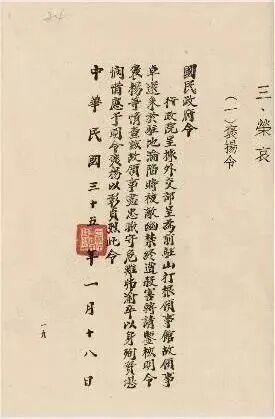 三、榮哀
(一)褒揚令
國民政府令
行政院呈據外交部呈為前駐山打根領事館故領事
卓還來於駐地淪陷時被敵幽禁終遭殺害轉請鑒核明令
褒揚等情查該故領事盡忠職守危難弗渝卒以身殉實堪
憫惜應予明令褒揚以彰貞烈此令
中華民國三十五年一月十八日
一九